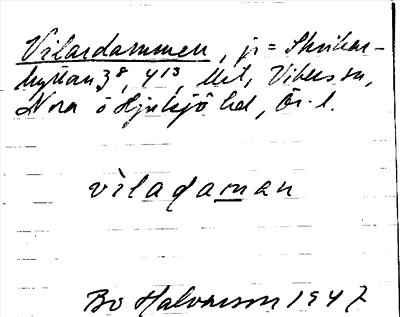 Vilardammen, j = Skrikar-
hyttan 3⁸, 4¹³, Vikers sn,
Nora o Hjulsjö hd, Ör. l.
vìladaman
Bo Halvarson 1947